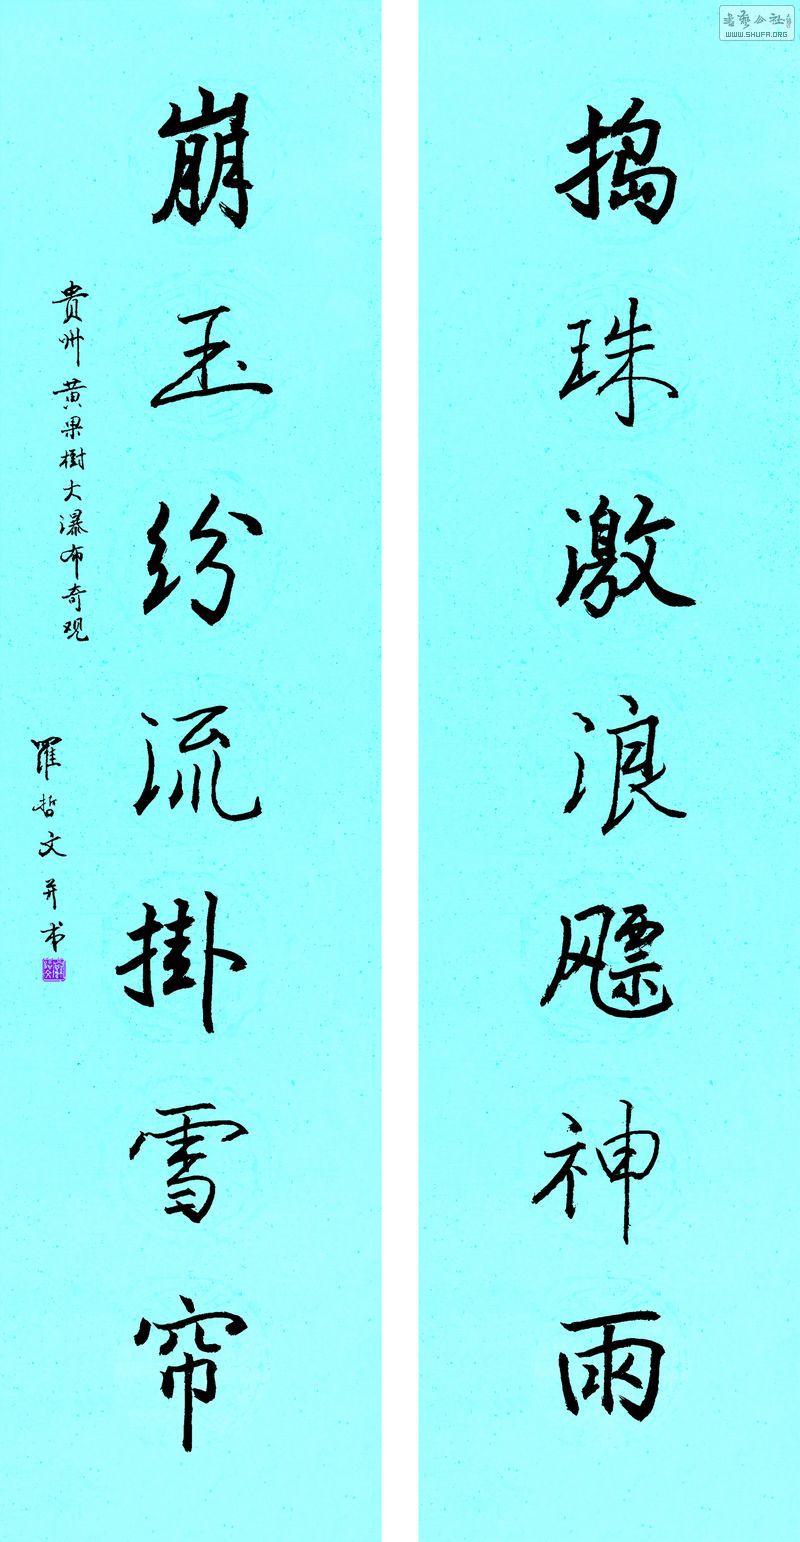 捣珠激浪飃神雨
崩玉纷流掛雪帘
貴州黄果樹大瀑布奇观
羅哲文并书
书艺公社
WWW.SHUFA.ORG